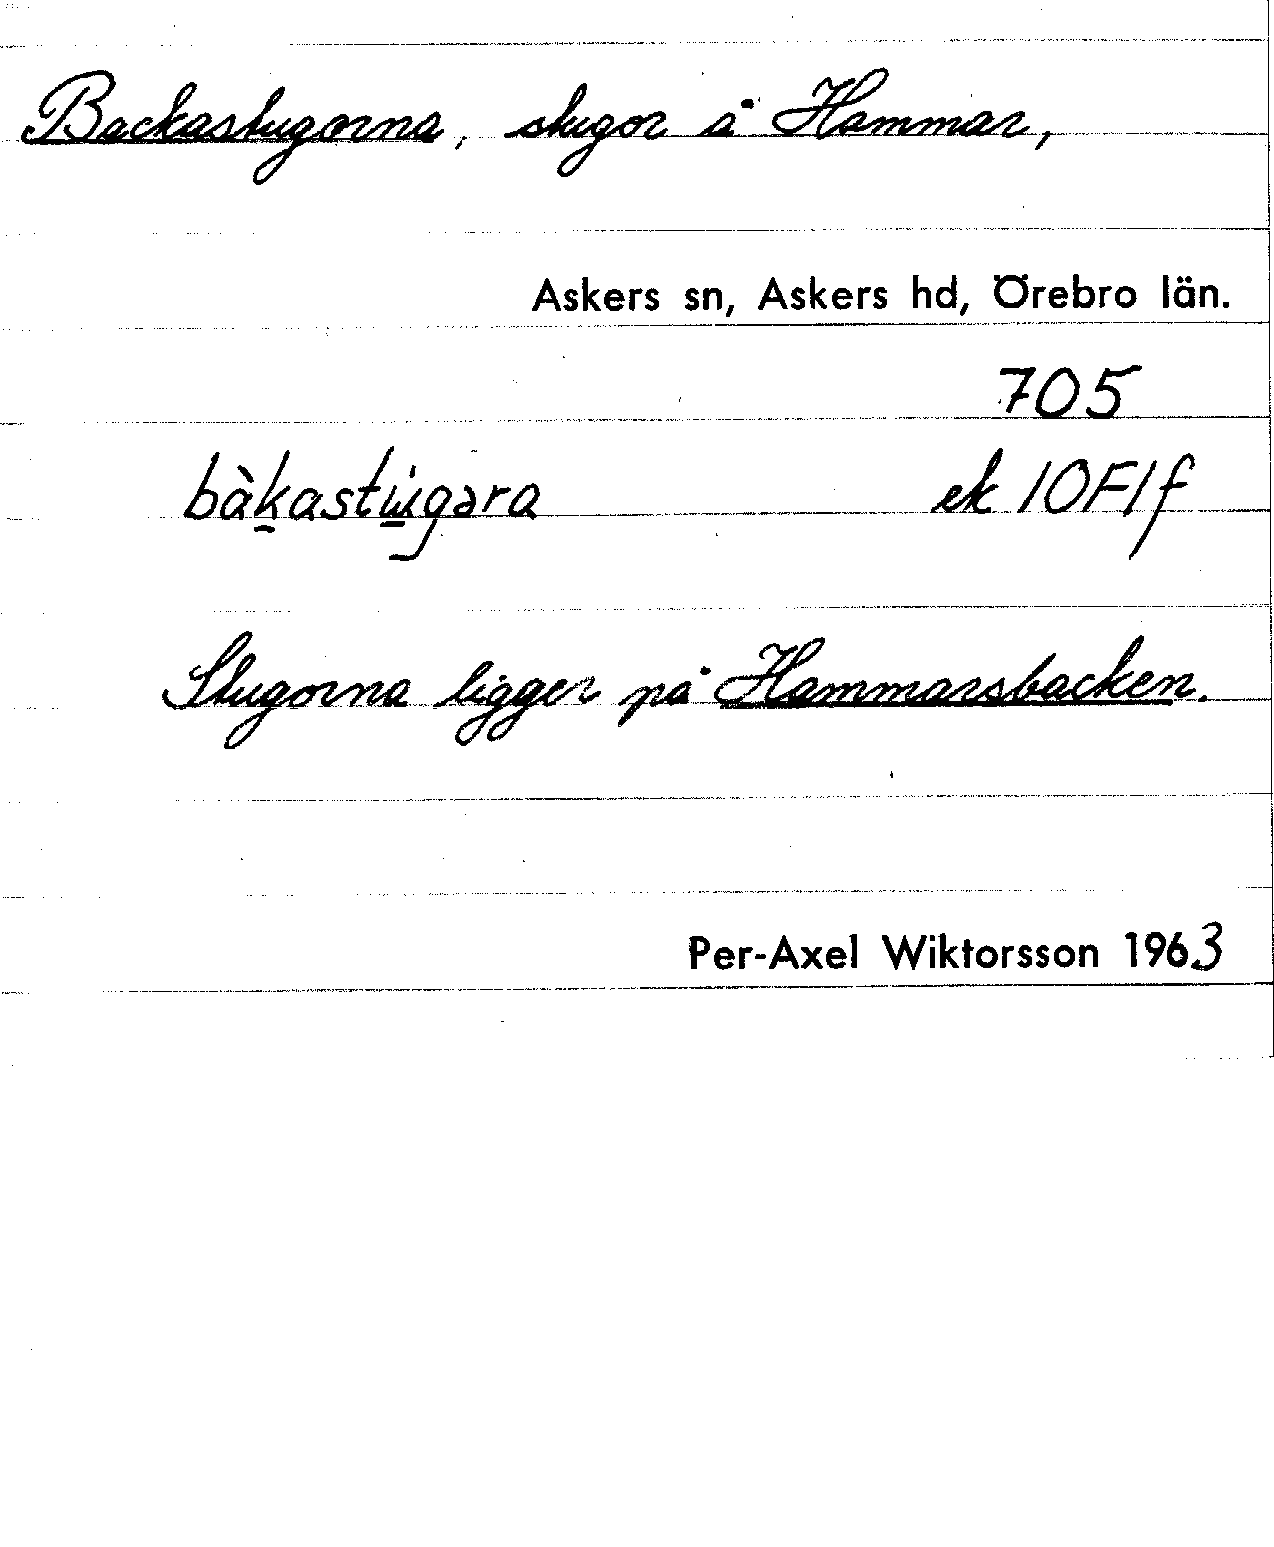 Backastugorna, stugor å Hammar,
Askers sn, Askers hd, Örebro län.
705
bàkastu̇gəra ek 10F1f
Stugorna ligger på Hammarsbacken.
Per-Axel Wiktorsson 1963